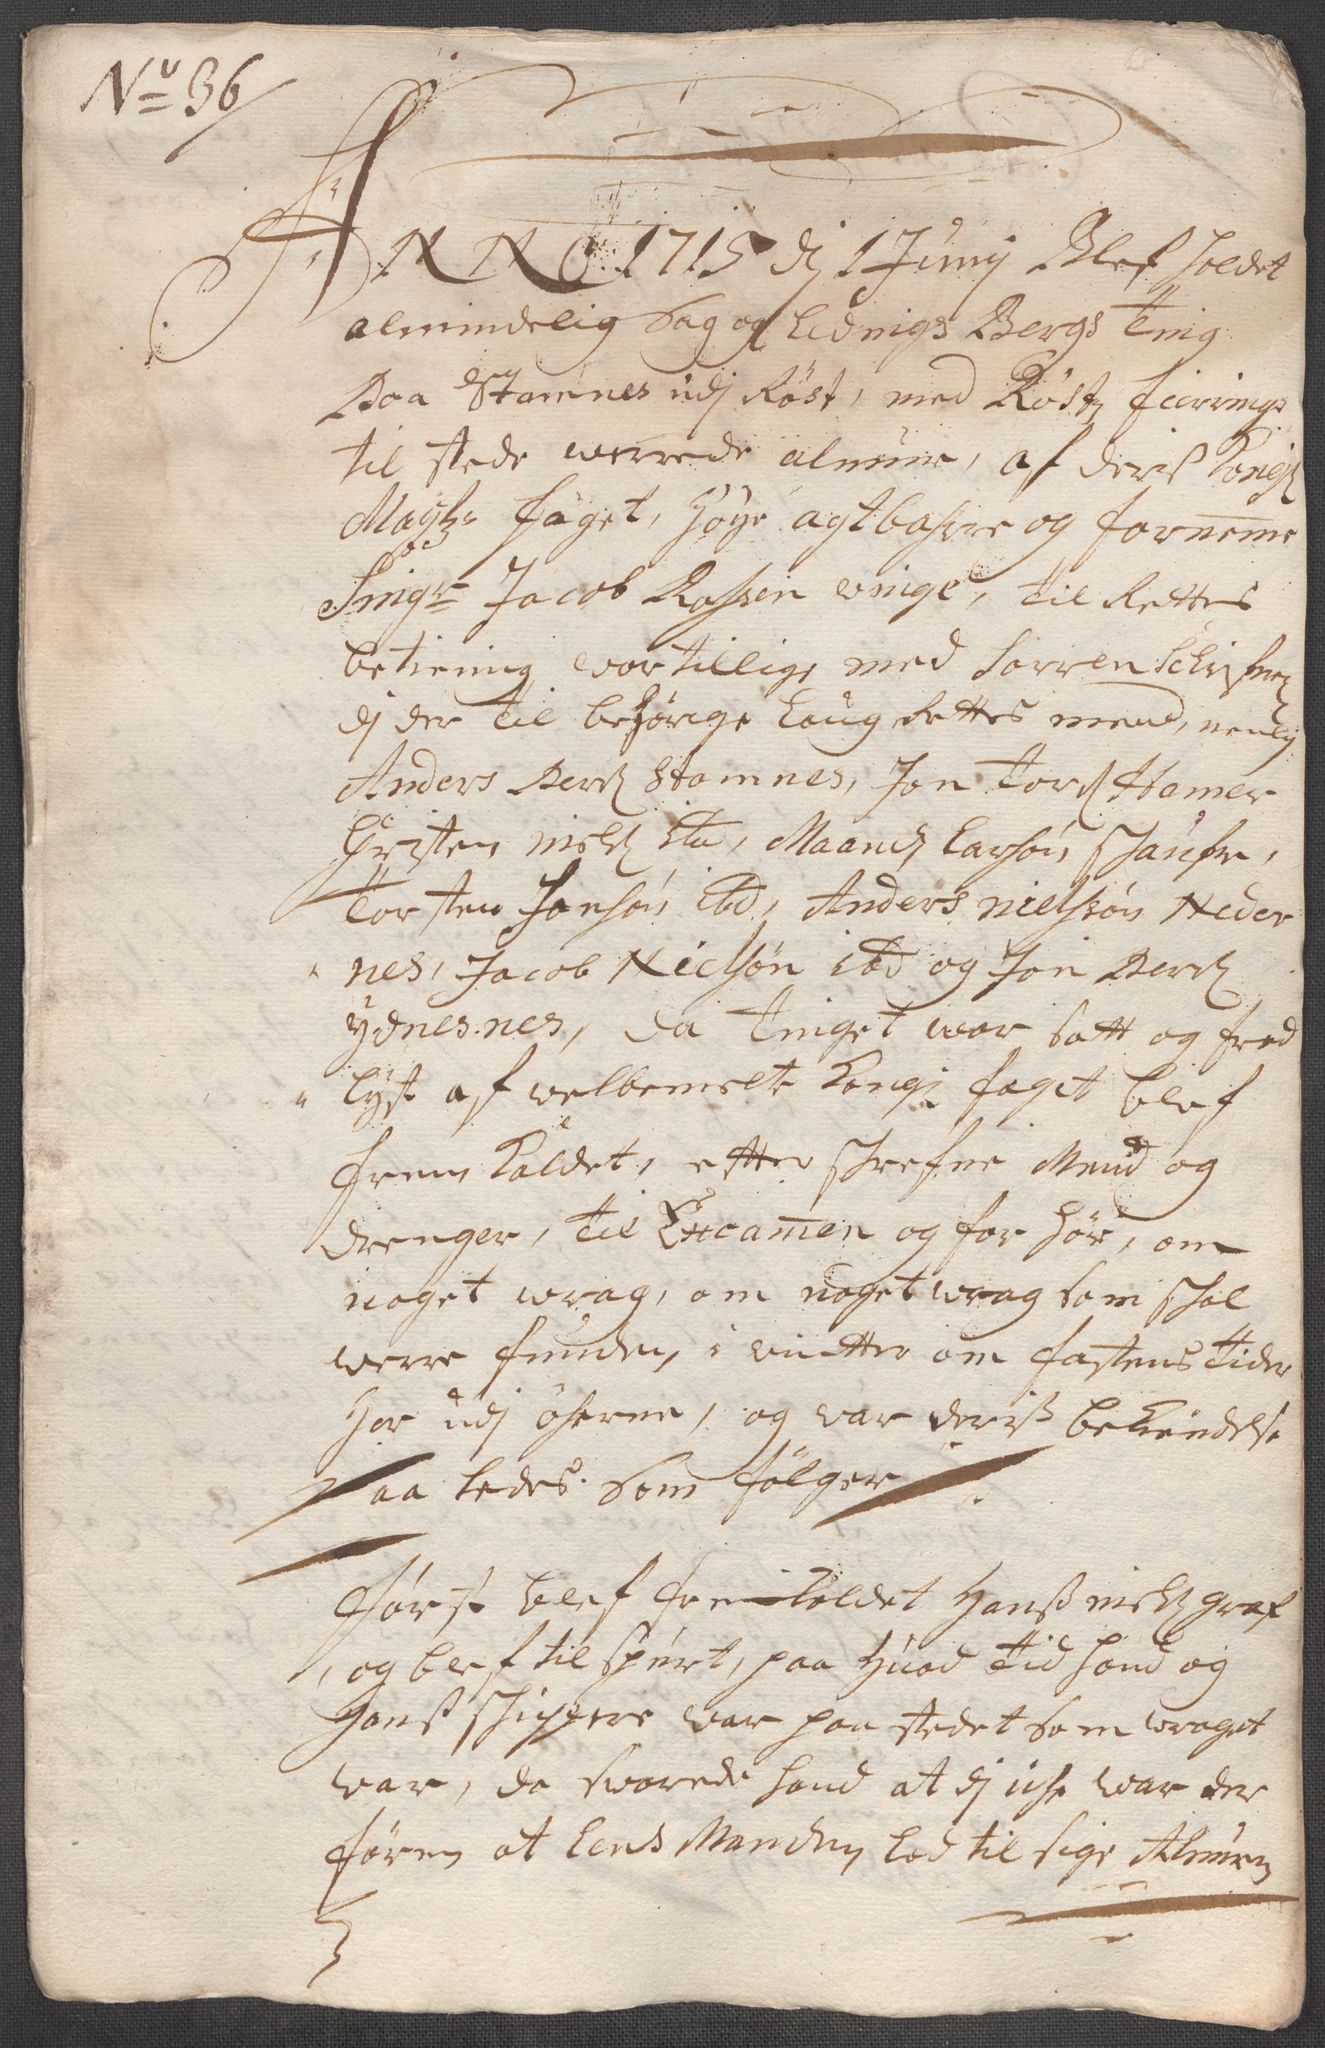 No 36
ANNO 1715 dj 1 Junij Blef holdet
almindelig Sag og Ledings Bergs Ting
Paa Stamnes udj Røst, med Røst fierings
til stede werrede almue, af deris Kongl
Mayts foget, Høye agtbahre og fornemme
Sinigr Jacob Rossen winge, til Rettes
betiening war tillige med Sorren Skrifver
dj der til behørige Laug Rettes mend, nemlig
Anders Pers Stamnes, Jon Tors Hamer
Christen niels ibd, Maans Larsøn
Torsten Jonsøn ibd, Anders nielssøn Neder
nes, Jacob Nielsøn ibd og Jon Pers
ydnes nes, da Tinget war satt og fred
lyst af welbemelte Kongl foget blef
frem kaldet, efter schrefne Mend og
drenger, til Excamen og for hør, om
noget wrag, om noget wrag som schal
werre funden, i winter om fastens Tider
her udj øherne, og war deris bekiendelse
saa ledes som følger
Først blef frem kaldet Hans niels graf
, og blef til spurt, paa huad Tid hand og
Hans schippere war paa stedet som wraget
war, da swarede hand at dj iche war der
føren at Lens Manden lod til sige Almuen